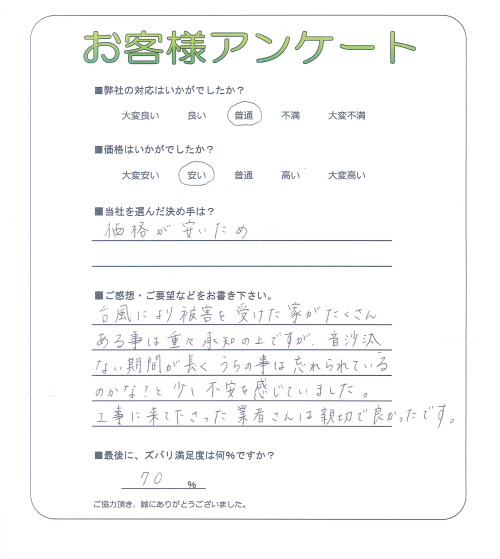 お客様アンケート
■弊社の対応はいかがでしたか？
大変良い 良い 普通 不満 大変不満
■価格はいかがでしたか？
大変安い 安い 普通 高い 大変高い
■当社を選んだ決め手は？
価格が安いため
■ご感想・ご要望などをお書き下さい。
台風により被害を受けた家がたくさん
ある事は重々承知の上ですが、音沙汰
ない期間が長くうちの事は忘れられている
のかな？と少し不安を感じていました。
工事に来て下さった業者さんは親切で良かったです。
■最後に、ズバリ満足度は何%ですか？
70 %
ご協力頂き、誠にありがとうございました。